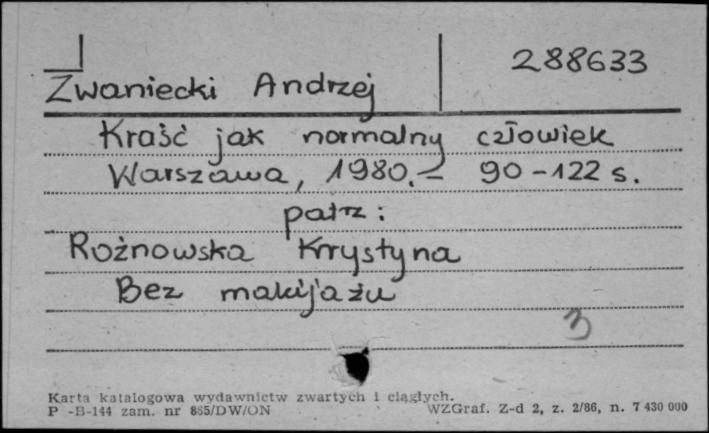 288633
Zwaniecki Andrzej
Kraść jak normalny człowiek
Warszawa, 1980. – 90-122 s.
patrz:
Rożnowska Krystyna
Bez makijażu
3
Karta katalogowa wydawnictw zwartych i ciągłych.
P -B-144 zam. nr 865/DW/ON WZGraf. Z-d 2, z. 2/86, n. 7 430 000